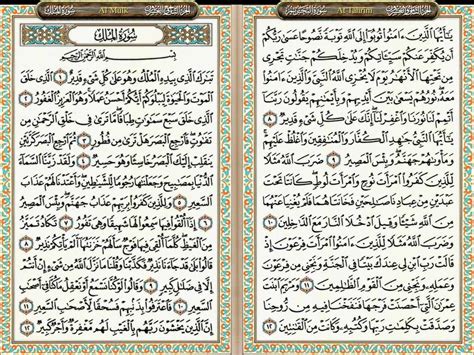 سورة التحريم At Tahrim الجزء الثامن والعشرون
يَٰٓأَيُّهَا ٱلَّذِينَ ءَامَنُوا۟ تُوبُوٓا۟ إِلَى ٱللَّهِ تَوْبَةً نَّصُوحًا عَسَىٰ رَبُّكُمْ
أَن يُكَفِّرَ عَنكُمْ سَيِّـَٔاتِكُمْ وَيُدْخِلَكُمْ جَنَّٰتٍ تَجْرِى
مِن تَحْتِهَا ٱلْأَنْهَٰرُ يَوْمَ لَا يُخْزِى ٱللَّهُ ٱلنَّبِىَّ وَٱلَّذِينَ ءَامَنُوا۟
مَعَهُۥ نُورُهُمْ يَسْعَىٰ بَيْنَ أَيْدِيهِمْ وَبِأَيْمَٰنِهِمْ يَقُولُونَ رَبَّنَآ
أَتْمِمْ لَنَا نُورَنَا وَٱغْفِرْ لَنَآ إِنَّكَ عَلَىٰ كُلِّ شَىْءٍ قَدِيرٌ ٨
يَٰٓأَيُّهَا ٱلنَّبِىُّ جَٰهِدِ ٱلْكُفَّارَ وَٱلْمُنَٰفِقِينَ وَٱغْلُظْ عَلَيْهِمْ
وَمَأْوَىٰهُمْ جَهَنَّمُ وَبِئْسَ ٱلْمَصِيرُ ٩ ضَرَبَ ٱللَّهُ مَثَلًا
لِّلَّذِينَ كَفَرُوا۟ ٱمْرَأَتَ نُوحٍ وَٱمْرَأَتَ لُوطٍ كَانَتَا تَحْتَ
عَبْدَيْنِ مِنْ عِبَادِنَا صَٰلِحَيْنِ فَخَانَتَاهُمَا فَلَمْ يُغْنِيَا عَنْهُمَا
مِنَ ٱللَّهِ شَيْـًٔا وَقِيلَ ٱدْخُلَا ٱلنَّارَ مَعَ ٱلدَّٰخِلِينَ ١٠
وَضَرَبَ ٱللَّهُ مَثَلًا لِّلَّذِينَ ءَامَنُوا۟ ٱمْرَأَتَ فِرْعَوْنَ إِذْ
قَالَتْ رَبِّ ٱبْنِ لِى عِندَكَ بَيْتًا فِى ٱلْجَنَّةِ وَنَجِّنِى مِن فِرْعَوْنَ
وَعَمَلِهِۦ وَنَجِّنِى مِنَ ٱلْقَوْمِ ٱلظَّٰلِمِينَ ١١ وَمَرْيَمَ ٱبْنَتَ
عِمْرَٰنَ ٱلَّتِىٓ أَحْصَنَتْ فَرْجَهَا فَنَفَخْنَا فِيهِ مِن رُّوحِنَا
وَصَدَّقَتْ بِكَلِمَٰتِ رَبِّهَا وَكُتُبِهِۦ وَكَانَتْ مِنَ ٱلْقَٰنِتِينَ ١٢
سورة الملك Al Mulk
سُورَةُ المُلْكِ
بِسْمِ ٱللَّهِ ٱلرَّحْمَٰنِ ٱلرَّحِيمِ
تَبَٰرَكَ ٱلَّذِى بِيَدِهِ ٱلْمُلْكُ وَهُوَ عَلَىٰ كُلِّ شَىْءٍ قَدِيرٌ ١ ٱلَّذِى خَلَقَ
ٱلْمَوْتَ وَٱلْحَيَوٰةَ لِيَبْلُوَكُمْ أَيُّكُمْ أَحْسَنُ عَمَلًا وَهُوَ ٱلْعَزِيزُ ٱلْغَفُورُ ٢
ٱلَّذِى خَلَقَ سَبْعَ سَمَٰوَٰتٍ طِبَاقًا مَّا تَرَىٰ فِى خَلْقِ ٱلرَّحْمَٰنِ مِن
تَفَٰوُتٍ فَٱرْجِعِ ٱلْبَصَرَ هَلْ تَرَىٰ مِن فُطُورٍ ٣ ثُمَّ ٱرْجِعِ ٱلْبَصَرَ كَرَّتَيْنِ
يَنقَلِبْ إِلَيْكَ ٱلْبَصَرُ خَاسِئًا وَهُوَ حَسِيرٌ ٤ وَلَقَدْ زَيَّنَّا ٱلسَّمَآءَ
ٱلدُّنْيَا بِمَصَٰبِيحَ وَجَعَلْنَٰهَا رُجُومًا لِّلشَّيَٰطِينِ وَأَعْتَدْنَا لَهُمْ عَذَابَ
ٱلسَّعِيرِ ٥ وَلِلَّذِينَ كَفَرُوا۟ بِرَبِّهِمْ عَذَابُ جَهَنَّمَ وَبِئْسَ ٱلْمَصِيرُ
٦ إِذَآ أُلْقُوا۟ فِيهَا سَمِعُوا۟ لَهَا شَهِيقًا وَهِىَ تَفُورُ ٧ تَكَادُ تَمَيَّزُ
مِنَ ٱلْغَيْظِ كُلَّمَآ أُلْقِىَ فِيهَا فَوْجٌ سَأَلَهُمْ خَزَنَتُهَآ أَلَمْ يَأْتِكُمْ نَذِيرٌ ٨
قَالُوا۟ بَلَىٰ قَدْ جَآءَنَا نَذِيرٌ فَكَذَّبْنَا وَقُلْنَا مَا نَزَّلَ ٱللَّهُ مِن شَىْءٍ إِنْ أَنتُمْ
إِلَّا فِى ضَلَٰلٍ كَبِيرٍ ٩ وَقَالُوا۟ لَوْ كُنَّا نَسْمَعُ أَوْ نَعْقِلُ مَا كُنَّا فِىٓ أَصْحَٰبِ
ٱلسَّعِيرِ ١٠ فَٱعْتَرَفُوا۟ بِذَنۢبِهِمْ فَسُحْقًا لِّأَصْحَٰبِ ٱلسَّعِيرِ
١١ إِنَّ ٱلَّذِينَ يَخْشَوْنَ رَبَّهُم بِٱلْغَيْبِ لَهُم مَّغْفِرَةٌ وَأَجْرٌ كَبِيرٌ ١٢